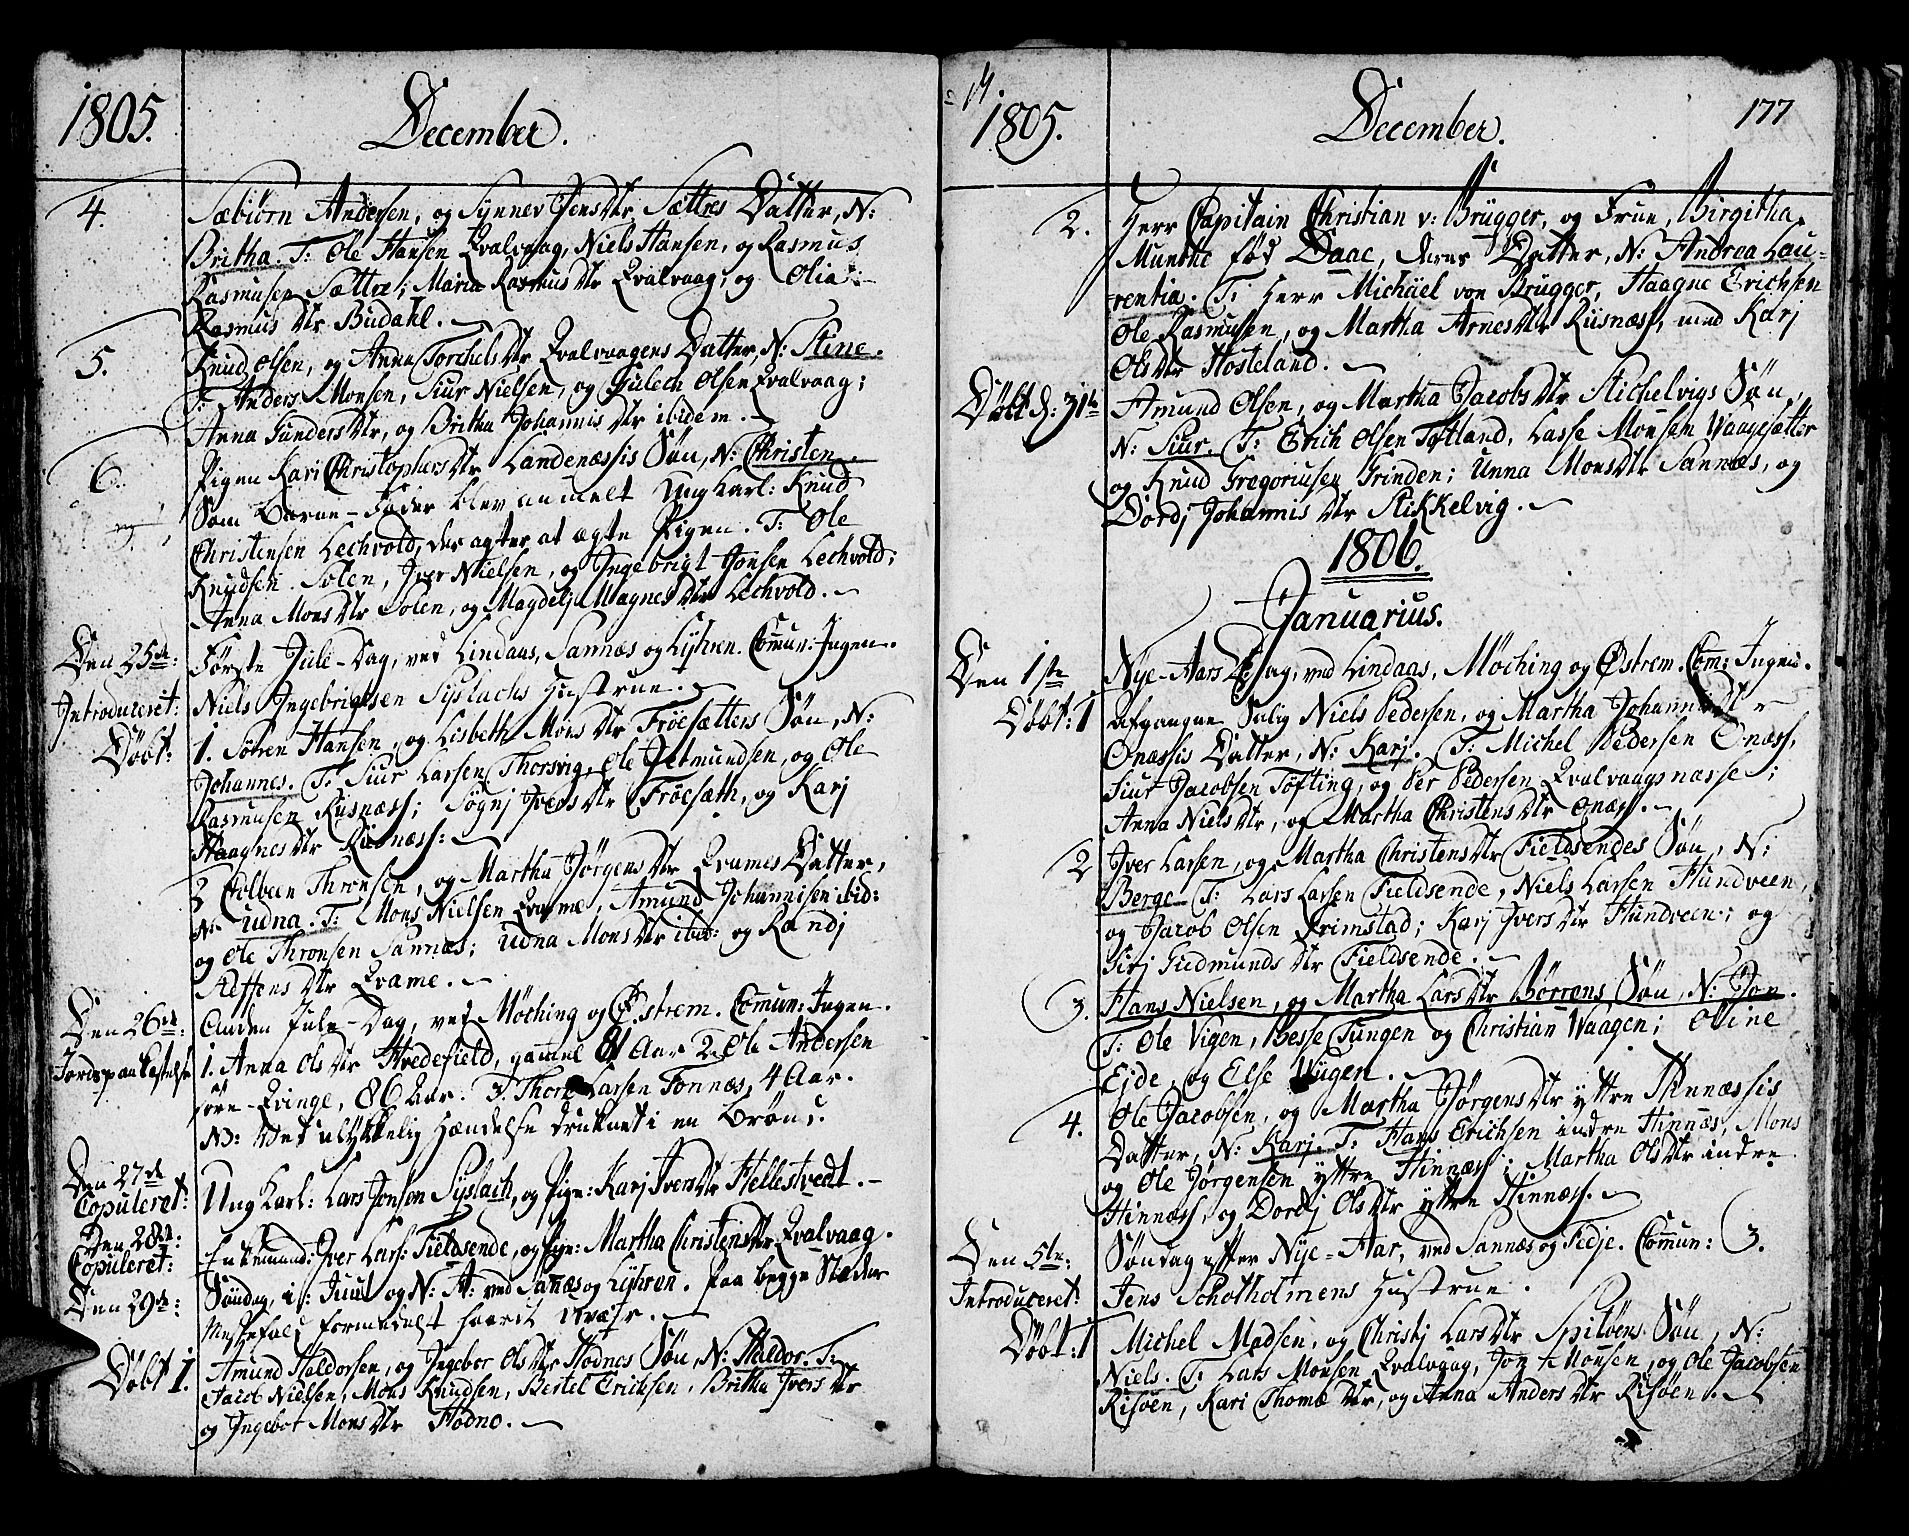 1805.
December.
4.
Sæbiørn Andersen, og Synnev Jensdtr Sættres Datter, N:
Britha. T: Ole Hansen Qvalvaag, Niels Hansen, og Rasmus
Rasmusen Sættre; Maria Rasmusdtr Qvalvaag, og Olia
Rasmusdtr Budahl.
5.
Knud Olsen, og Anna Torchelsdtr Qvalvaagens Datter, N: Stine.
T: Anders Monsen, Siur Nielsen, og Gulech Olsen Qvalvaag;
Anna Gundersdtr, og Britha Johannisdtr ibidem.
6.
Pigen Kari Christophersdtr Landenæssis Søn, N: Christen.
Som Barne-Fader blev anmelt Ungkarl: Knud
Christensen Lechvold, der agter at ægte Pigen. T: Ole
Knudsen Solen, Iver Nielsen, og Ingebrigt Jonsen Lechvold;
Anna Monsdtr Solen, og Magdelj Magnesdtr Lechvold.
Den 25de:
Første Jule-Dag, ved Lindaas, Sannæs og Lyhren. Comun: Ingen.
Introduceret:
Niels Ingebrigtsen Syslachs Hustrue.
Døbt:
1. Søren Hansen, og Lisbeth Monsdtr Frøesætters Søn, N:
Johannes. T: Siur Larsen Thorsvig, Ole Jetmundsen, og Ole
Rasmusen Risnæss; Søgnj Iversdtr Frøesæth, og Karj
Haagnesdtr Risnæss:
2 Colbeen Thronsen, og Martha Jørgensdtr Qvames Datter,
N: Udna. T: Mons Nielsen Qvame, Amund Johannisen ibid:
og Ole Thronsen Sannæs; Udna Monsdtr ibid: og Randj
Steffensdtr Qvame.
Den 26de:
Anden Jule-Dag, ved Møching og Østrem. Comun: Ingen.
Jordspaakastelse
1. Anna Olsdtr Hvedefield, gammel 81 Aar 2. Ole Andersen
Qvinge, 86 Aar. 3. Larsen Fonnæs, 4 Aar.
NB: Ved ulykkelig Hændelse druknet i en Brønd.
Den 27de
Copuleret:
Ung Karl: Lars Jonsen Syslach, og Pige: Karj Iversdtr Hellestvedt.
Den 28de:
Copuleret:
Enkemand: Iver Lars: Fieldsende, og Pige: Martha Christensdtr Qvalvaag.
Den 29de:
Søndag, i: Juul og N: A: ved Sanæs og Lyhren. Paa begge Stæder
Messefald formedelst haardt Veir.
Døbt 1.
Amund Haldorsen, og Ingebor Olsdtr Hodnes Søn, N: Haldor. T:
Jacob Nielsen, Mons Knudsen, Bertel Ericksen, Britha Iversdtr
og Ingebor Monsdtr Hodne.
14
1805.
December.
177
2.
Herr Capitain Christian v: Brügger, og Frue, Birgitha
Munthe fød Daae, deres Datter, N: Andrea Lau-
rentia. T: Herr Michäel von Brügger, Haagne Erichsen
Ole Rasmusen, og Martha Arnesdtr Risnæss, med Karj
Olsdtr Hosteland.
Døbt d: 31te
Amund Olsen, og Martha Jacobsdtr Stichelvigs Søn,
N: Siur. T: Erich Olsen Toftland, Lasse Monsen Vaagesætter
og Knud Gregoriusen Grinden; Unna Monsdtr Sannæs, og
Dordj Johannisdtr Stikkelvig.
1806.
Januarius.
Den 1ste
Nye-Aars Dag, ved Lindaas, Møching og Østrem. Com: Ingen.
Døbt: 1
Afgangne Salig Niels Pedersen, og Martha Johannisdtr
Onæssis Datter, N: Karj. T: Michel Pedersen Onæss,
Siur Jacobsen Tøfting, og Per Pedersen Qvalvaagsnæsse;
Anna Nielsdtr, og Martha Christensdtr Onæss.
2
Iver Larsen, og Martha Christensdtr Fieldsendes Søn, N:
Berge. T: Lars Larsen Fieldsende, Niels Larsen Hundveen,
og Jacob Olsen Grimstad; Karj Iversdtr Hundveen; og
Sirj Gudmundsdtr Fieldsende.
3.
Hans Nielsen, og Martha Larsdtr Børrøns Søn, N: Jon.
T: Ole Vigen, Besse Tungen og Christian Vaagen; Oline
Ejde, og Else Vügen.
4.
Ole Jacobsen, og Martha Jørgensdtr yttre Hinnæssis
Datter, N: Karj. T: Hans Erichsen indre Hinnæs, Mons
og Ole Jørgensen yttre Hinnæss; Martha Olsdtr indre
Hinnæss, og Dordj Olsdtr yttre Hinnæss.
Den 5te:
Søndag efter Nye-Aar, ved Sannæs og Fedje. Comun: 3.
Introduceret:
Jens Schotholmens Hustrue.
Døbt: 1
Michel Madsen, og Christj Larsdtr Spitøens Søn, N:
Niels. T: Lars Monsen Qvalvaag, Jon Monsen, og Ole Jacobsen
Risøen, Kari Thomædtr, og Anna Andersdtr Risøen.